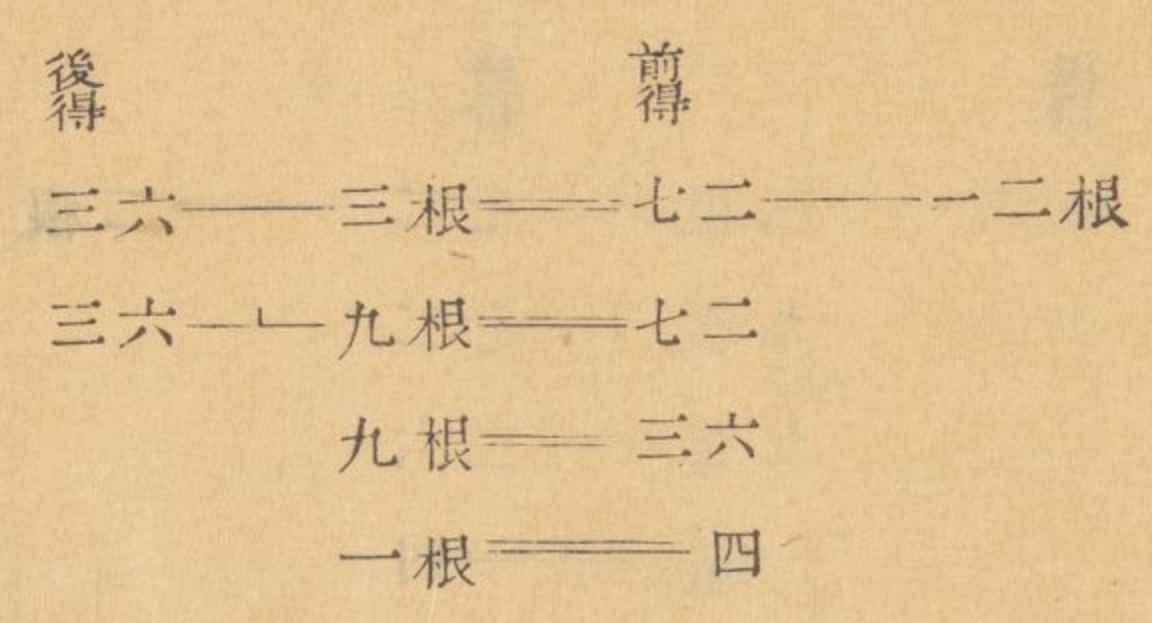 後得 前得
三六——三根==七二——一二根
三六—⊥—九根==七二
九根==三六
一根==四